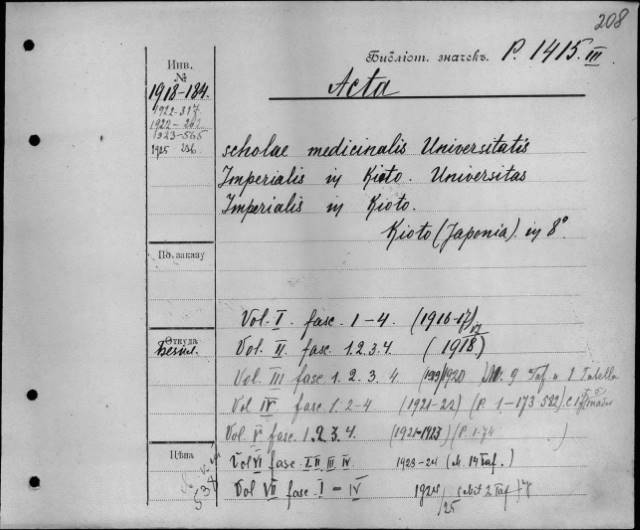 208
Инв.
№
Библіот. значекъ. P. 1415. III
1918-184.
Acta
1922-317
1922-
1923-565
1925 236
scholae medicinalis Universitatis
Imperialis in Kioto. Universitas
Imperialis in Kioto.
Kioto (Japonia). in 8°
По заказу
Vol. I. fasc. 1-4. (1916-17)
Откуда
Vol. II. fasc. 1.2.3.4. (1918)
Vol. III fasc. 1. 2. 3. 4. (1919/1920) 9 Taf. u. 1 Tabelle
Vol IV fasc. 1.2-4 (1921-22) (P. 1-173-582)
Vol. V fasc. 1.2.3.4. (1921-1923) (P. 1-74 )
Цѣна
Vol VI fasc. I II III IV 1923-24 (M. 19 Taf.)
534
Vol VII fasc. I - IV 1924/25 2 Taf